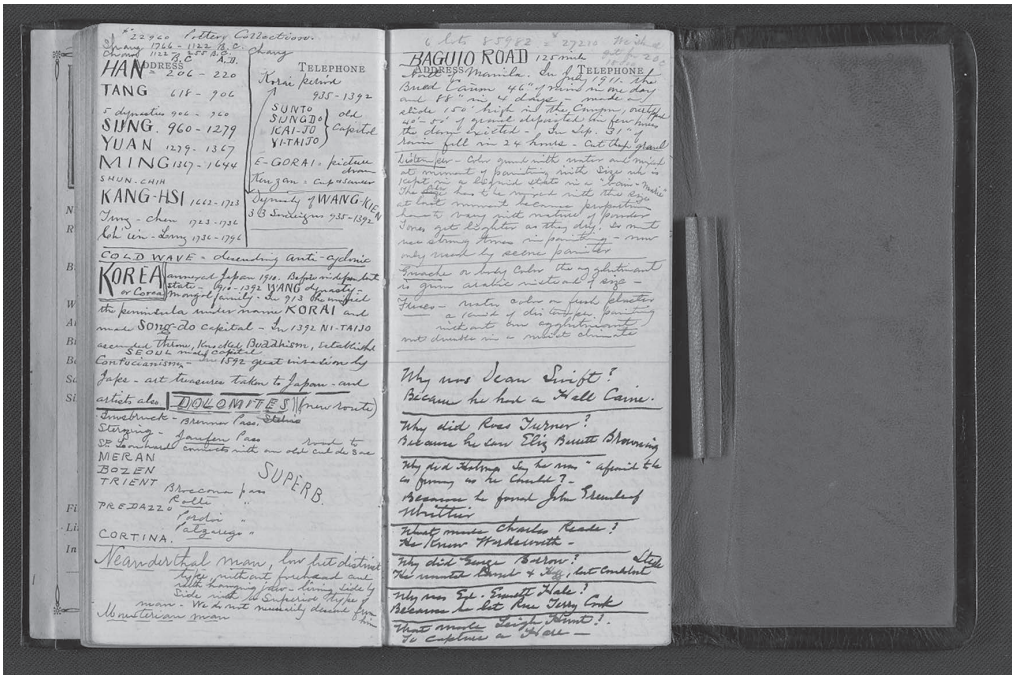 #22960 Pottery Collection.
Shang 1766 - 1122 B.C.
Chow 1122 - 255 B.C.
B.C. A.D.
ADDRESS
HAN = 206 - 220
TANG 618 - 906
5 dynasties 906 - 960
SUNG. 960-1279
YUAN 1279-1367
MING 1367-1644
SHUN. CHIH
KANG-HSI 1662-1723
Yung - chen 1723-1736
Ch'ien-Lung 1736-1796
TELEPHONE
Korai period
935-1392
SUNTO
SUNGDO
KAI-JO
YI-TAIJO
old
Capital
E-GORAI = picture
drawn
Dynasty of WANG-KIEN
Sovereigns 935-1392
COLD WAVE - descending anti-cyclonic
KOREA or Corea
annexed Japan 1910. Before independent
state - 910-1392 WANG dynasty -
Mongol family - In 913 he unified
the peninsula under name KORAI and
made Song-do capital - In 1392 NI-TAIJO
ascended throne, knocked Buddhism, established
SEOUL made capital
Confucianism - In 1592 great invasion by
Japs - art treasures taken to Japan - and
artists also.
DOLOMITES (new route)
Innsbruck - Brenner Pass. Stelvio
Sterzing - Jaufen Pass
St. Leonhard connects with an old cul de sac road to
MERAN
BOZEN
TRIENT
SUPERB.
Broccone pass
Rolle "
PREDAZZO
Pordoi "
Falzarego "
CORTINA.
Neanderthal man, low but distinct
type, without forehead and
side with a superior type of
man - We do not necessarily descend from
him
Mousterian man
6 lots 85982 = 27210
BAGUIO ROAD 125 miles
ADDRESS TELEPHONE
North of Manila. In July 1911 the
Bued Canon 46" of rain in one day
and 88" in 4 days - made a
slide 150' high in the Canyon,
40'-50' of gravel deposited in few hours
the dam existed - In Sep. 31" of
rain fell in 24 hours. Cut thep gravel
Distemper - Color ground with water and mixed
at moment of painting with size wh is
kept in a liquid state in a "bain-Marie"
The size has to be mixed with the
at last moment because proportion
have to vary with nature of powder
Tones get lighter as they dry. So must
use strong tones in painting - now
only used by scene painter
Gouache or body color the agglutinant
is gum arabic instead of size -
Fresco - water color on fresh plaster
- a kind of distemper painting
without an agglutinant
not durable in a moist climate
Why was Dean Swift?
Because he had a Hall Caine.
Why did Ross Turner?
Because he saw Eliz Barrett Browning
Why did Holmes say he was "afraid to be
as funny as he could?" -
Because he found John Greenleaf
Whittier
What made Charles Reade?
He Knew Wordsworth -
Why did George Borrow?
He wanted but Couldnt
Why was Ed. Everett Hale?
Because he let Rose Terry Cook
What made Leigh Hunt?
To capture a Hare -